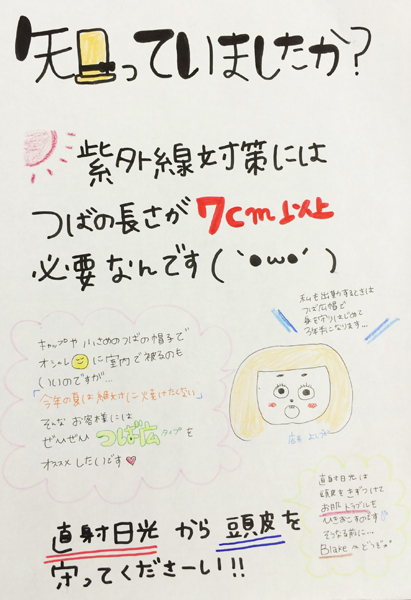 知っていましたか?
紫外線対策には
つばの長さが7cm以上
必要なんです(`●ω●´)
私も出勤するときは
つば広帽で
身を守りはじめて
になります…
キャップや小さめのつばの帽子で
オシャレに室内で被るのも
いいのですが…
「今年の夏は絶対に焼けたくない」
そんなお客様には
ぜひぜひつば広タイプを
オススメしたいです♥
直射日光は
頭皮をきずつけて
お肌トラブルを
ひきおこすのです
そうなる前に…
Blakeへどうぞ
直射日光から頭皮を
守ってくださーい!!